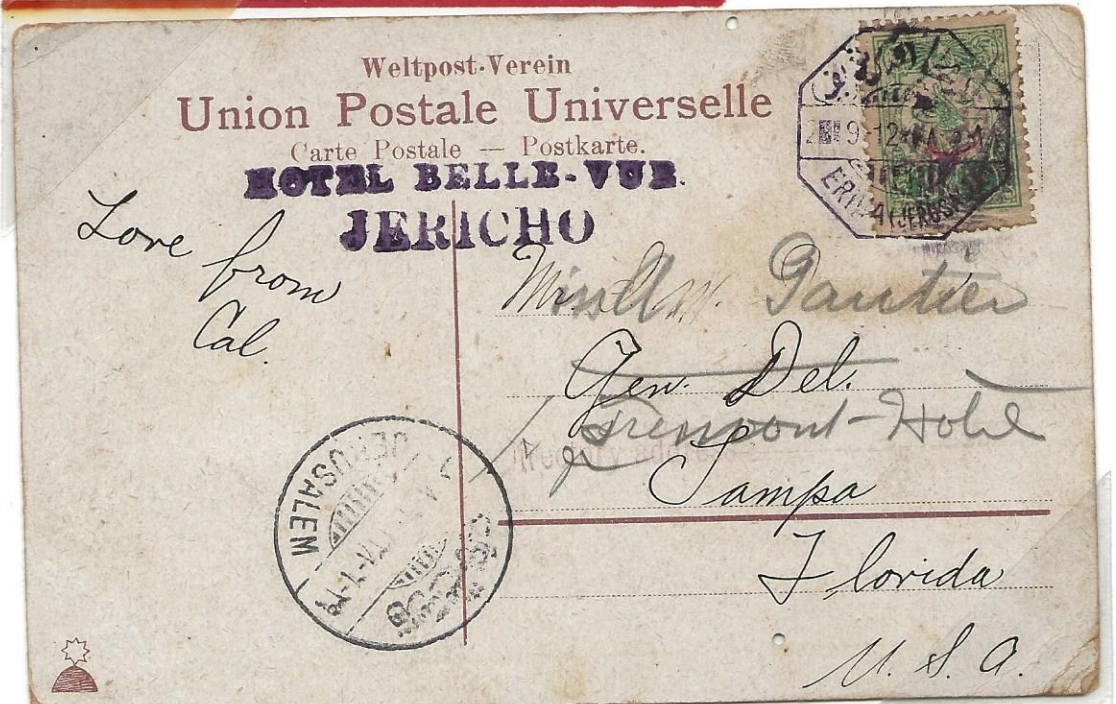 Weltpost-Verein
Union Postale Universelle
Carte Postale — Postkarte.
HOTEL BELLE-VUE.
JERICHO
Love from
Cal.
Miss M. Gautier
Gen. Del.
Tremont-Hotel
Directory
Tampa
Florida
U. S. A.
JERUSALEM
ERIHA (JERUSALEM)